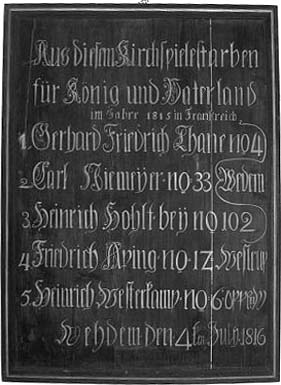 Aus diesem Kirchspiele starben
für König und Vaterland
im Jahre 1815 in Frankreich
1. Gerhard Friedrich Thane no 4
2. Carl Niemeyer no 33 Wedem
3. Heinrich Hohlt bey no 102
4. Friedrich Aying no 17 Westrup
5. Heinrich Westerkamp no 6 oppendw
Wehdem den 4ten July 1816